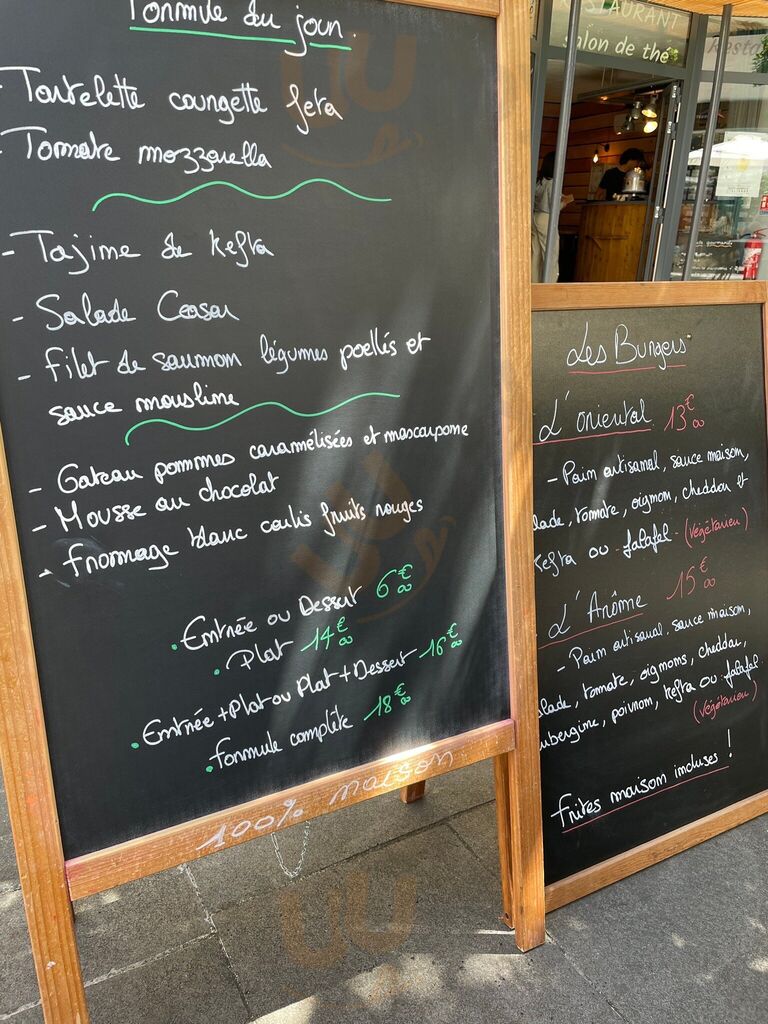 Formule du jour.
- Tartelette courgette feta
- Tomate mozzarella
- Tajine de kefta
- Salade Ceasar
- filet de saumon légumes poellés et
sauce mousline
- Gateau pommes caramélisées et mascarpone
- Mousse au chocolat
- fromage blanc coulis fruits rouges
. Entrée ou Dessert 6€00
. Plat 14€00
. Entrée + Plat ou Plat + Dessert 16€00
. formule complète 18€00
100% maison
RESTAURANT
salon de thé
Les Burgers
L'oriental 13€00
- Pain artisanal, sauce maison,
lade, tomate, oignon, cheddar et
kefta ou falafel (végétarien)
L'Arôme 15€00
- Pain artisanal, sauce maison,
lade, tomate, oignons, cheddar,
ubergine, poivron, kefta ou falafel
(végétarien)
frites maison incluses !